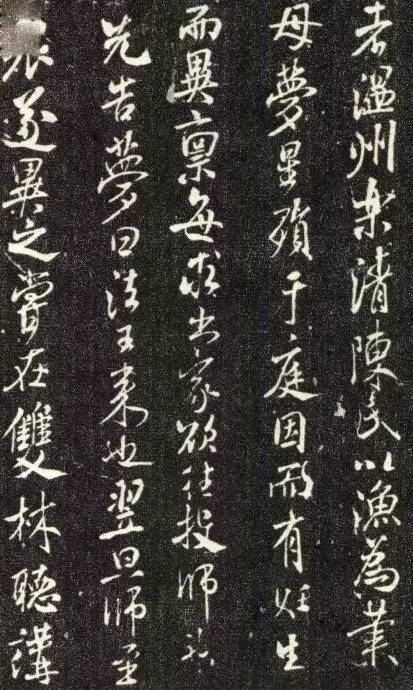 者溫州樂清陳氏以漁為業
母夢星殞于庭因而有妊生
而異稟每求出家欲往投師
先告夢曰法王來也翌旦師至
遂異之嘗在雙林聽講